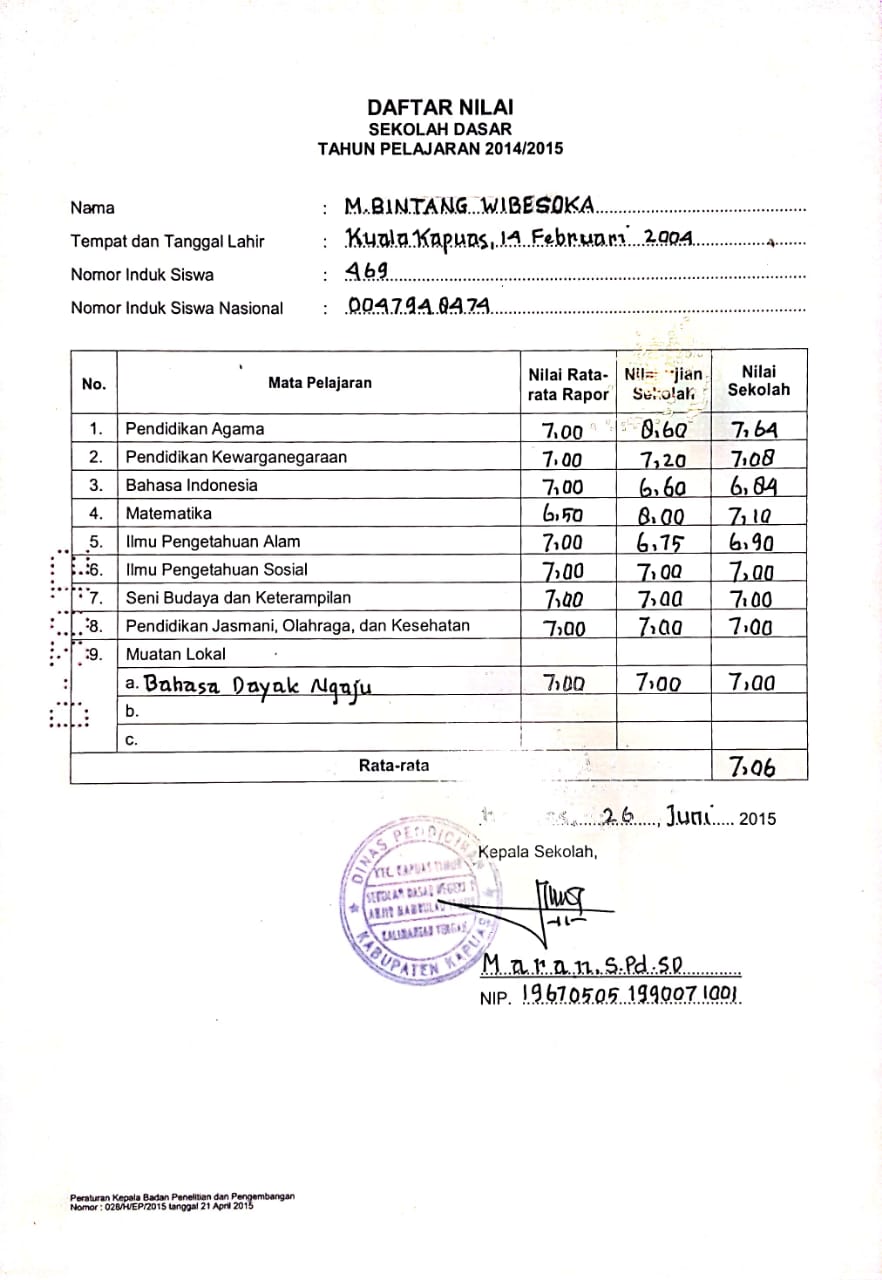 DAFTAR NILAI
SEKOLAH DASAR
TAHUN PELAJARAN 2014/2015
Nama : M.BINTANG WIBESOKA
Tempat dan Tanggal Lahir : Kuala Kapuas, 14 Februari 2004
Nomor Induk Siswa : 469
Nomor Induk Siswa Nasional : 0047948474
No. Mata Pelajaran Nilai Rata-rata Rapor Sekolah Nilai Sekolah
1. Pendidikan Agama 7,00 8,60 7,64
2. Pendidikan Kewarganegaraan 7,00 7,20 7,08
3. Bahasa Indonesia 7,00 6,60 6,84
4. Matematika 6,50 8,00 7,10
5. Ilmu Pengetahuan Alam 7,00 6,75 6,90
6. Ilmu Pengetahuan Sosial 7,00 7,00 7,00
7. Seni Budaya dan Keterampilan 7,00 7,00 7,00
8. Pendidikan Jasmani, Olahraga, dan Kesehatan 7,00 7,00 7,00
9. Muatan Lokal
a. Bahasa Dayak Ngaju 7,00 7,00 7,00
b.
c.
Rata-rata 7,06
26, Juni 2015
Kepala Sekolah,
DINAS PENDIDIKAN
KABUPATEN KAPUAS
Maran, S.Pd.SD
NIP. 19670505 1990071001
Peraturan Kepala Badan Penelitian dan Pengembangan
Nomor : 028/H/EP/2015 tanggal 21 April 2015